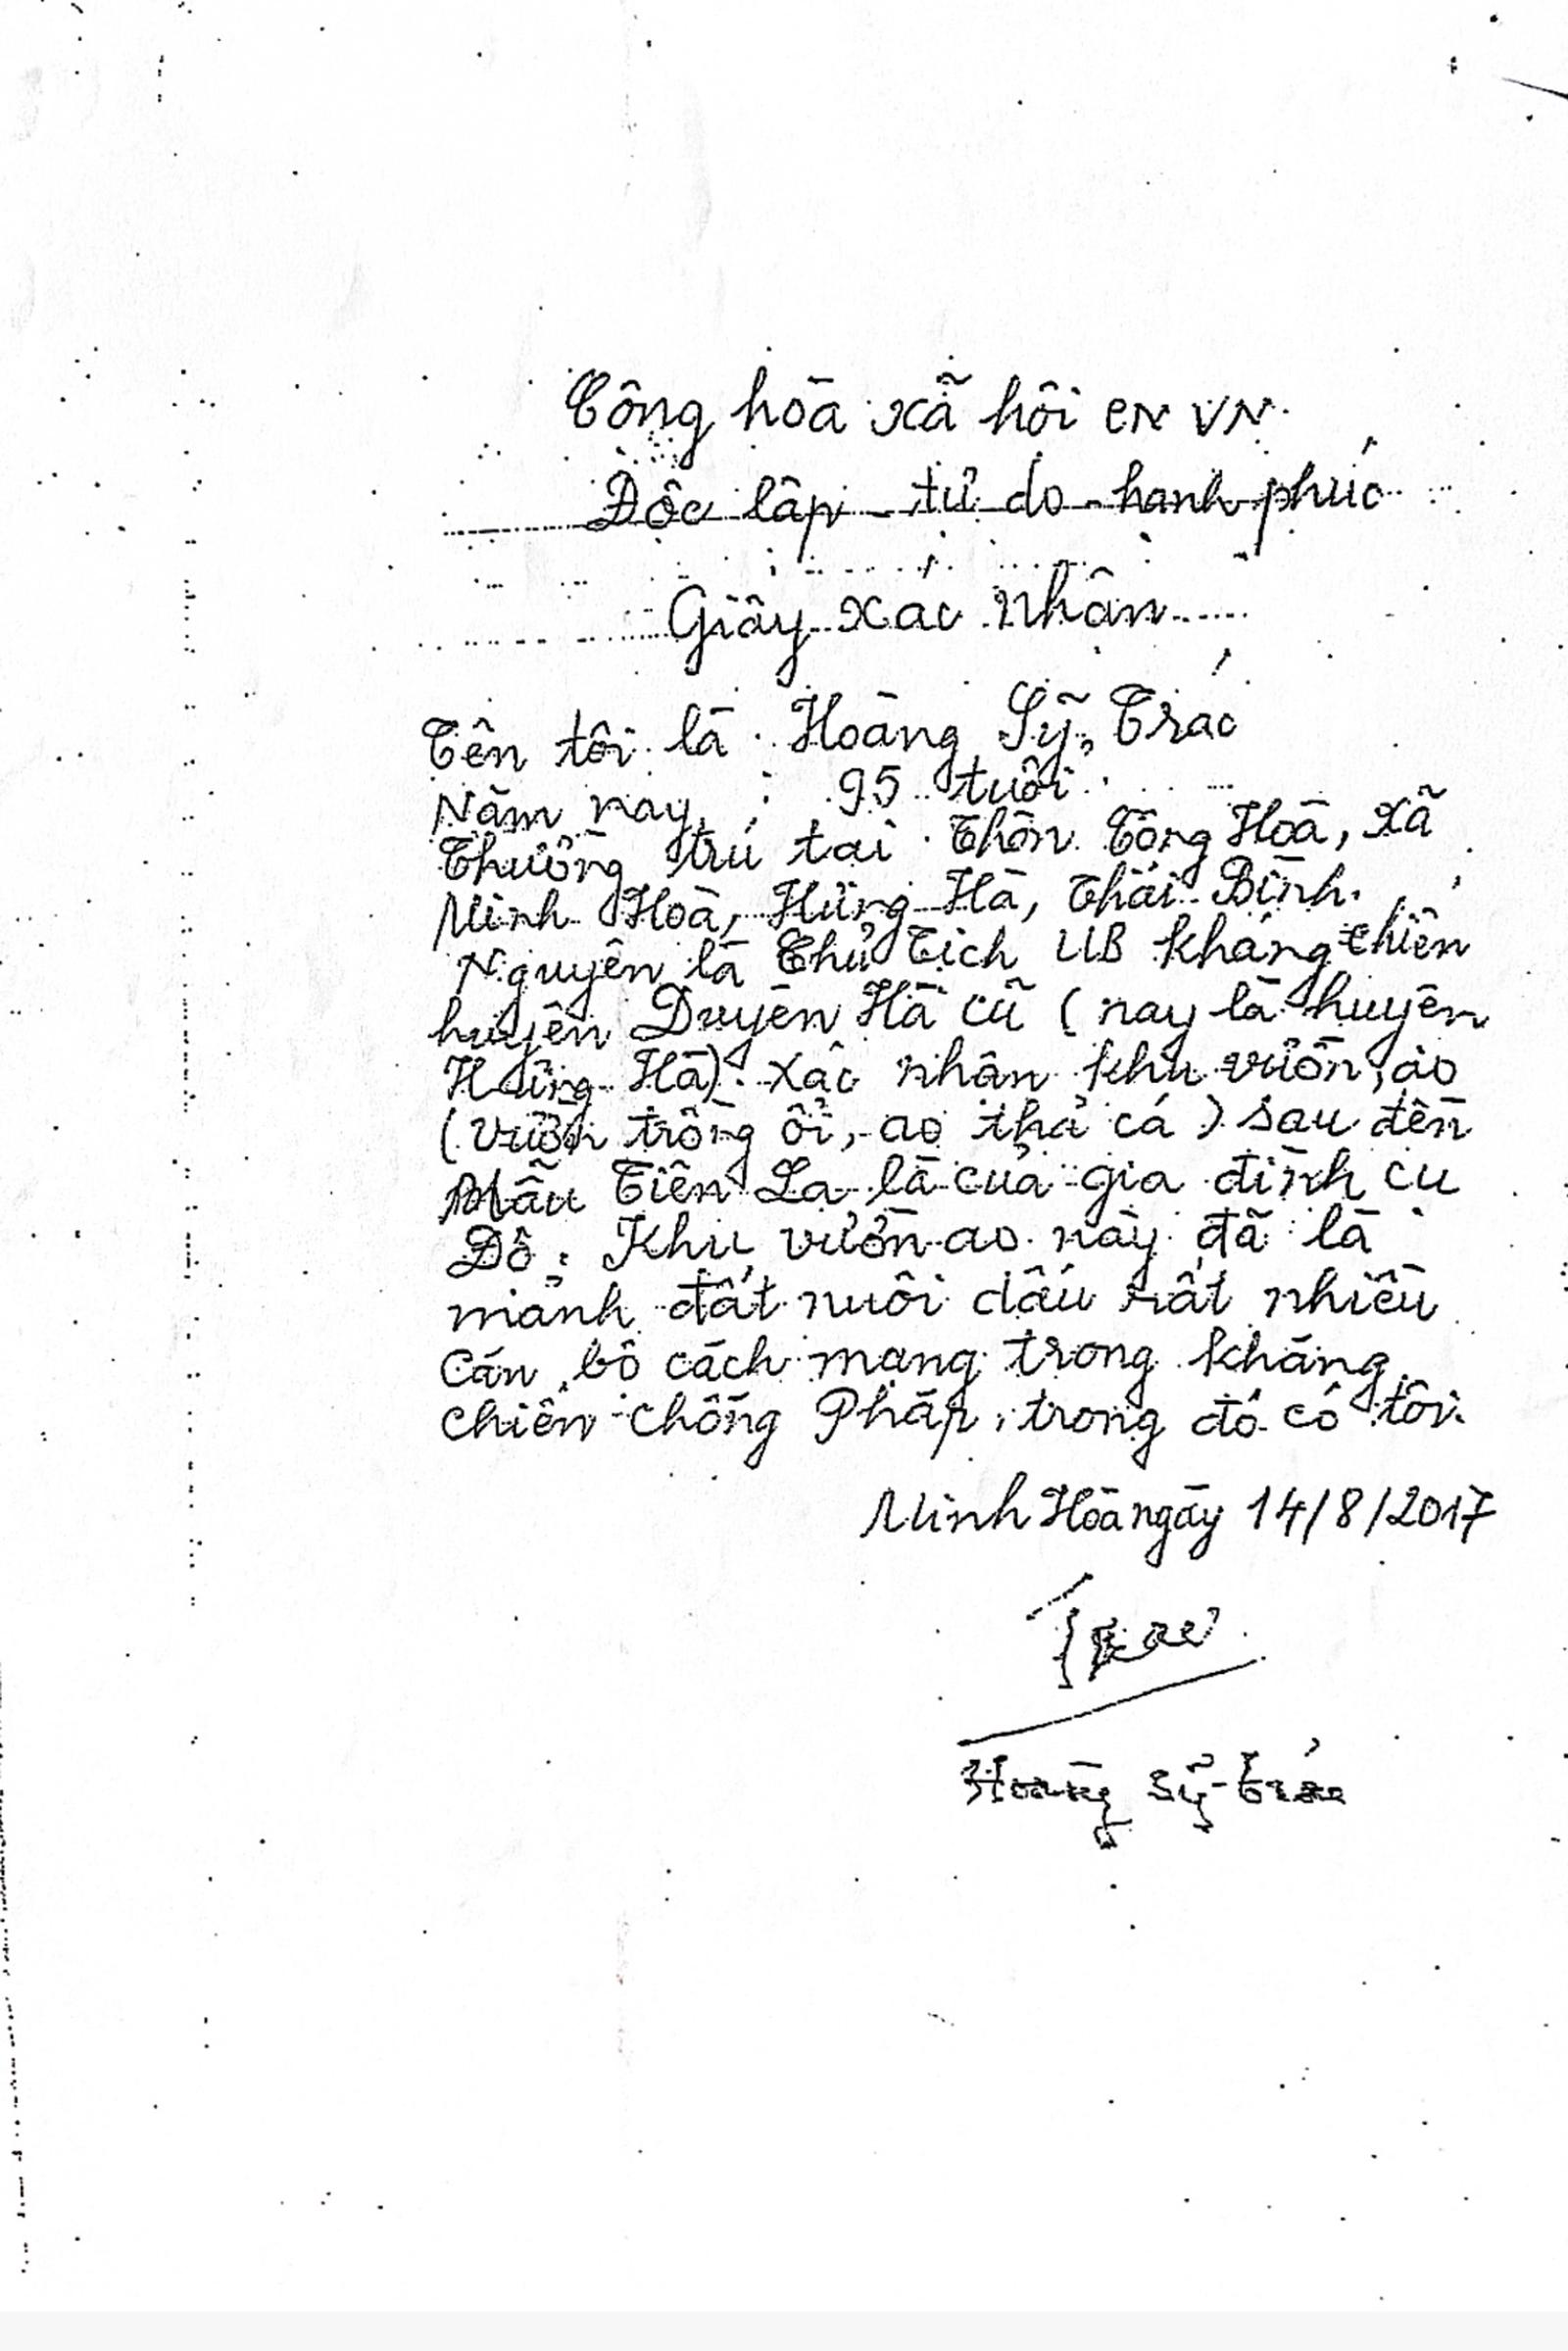 Công hòa xã hôi CN VN
Độc lập - tư do - hanh phúc
Giấy xác nhận
Tên tôi là Hoàng Sỹ Trác
Năm nay : 95 tuổi
Thường trú tại Thôn Cộng Hoà, xã
Minh Hoà, Hưng Hà, Thái Bình.
Nguyên là Chủ Tịch UB kháng chiến
huyện Duyên Hà cũ (nay là huyện
Hưng Hà). Xác nhận khu vườn, ao
(vườn trồng ổi, ao thả cá) sau đền
Mẫu Tiên La là của gia đình cụ
Đô; Khu vườn ao này đã là
mảnh đất nuôi dấu rất nhiều
Cán bộ cách mạng trong kháng
chiến chống Pháp, trong đó có tôi.
Minh Hoà ngày 14/8/2017
Trác
Hoàng Sỹ Trác